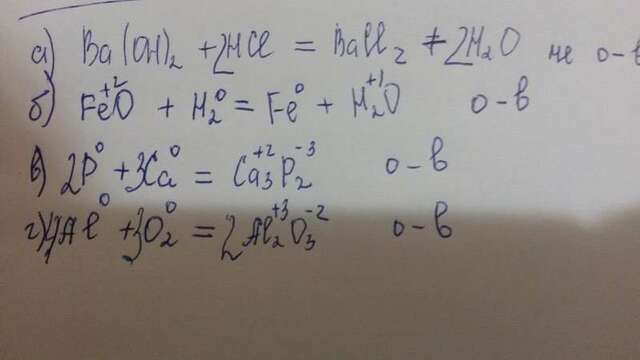 а) Ba(OH)₂ + 2HCl = BaCl₂ + 2H₂O не о-в
б) Fe⁺²O + H₂⁰ = Fe⁰ + H₂⁺¹O о-в
в) 2P⁰ + 3Ca⁰ = Ca₃⁺²P₂⁻³ о-в
г) 4Al⁰ + 3O₂⁰ = 2Al₂⁺³O₃⁻² о-в